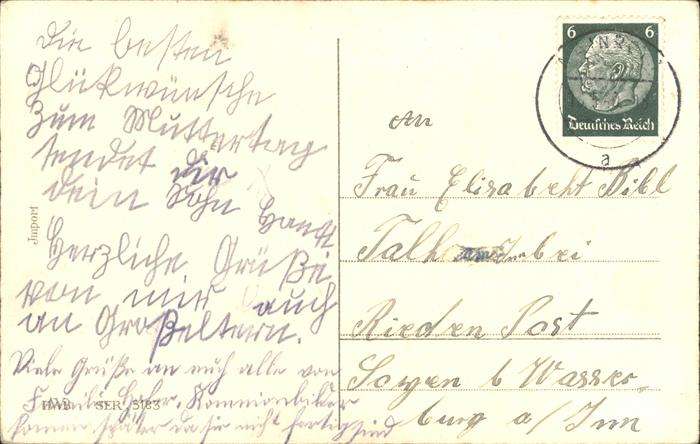 Die besten
Glükwünsche
zum Muttertag
sendet dir
dein Sohn Hansi
Herzliche Grüße
von mir auch
an Großeltern.
Viele Grüße an euch alle von
Familie Kommionbilder
kommen später da sie nicht fertig sind
Import
HWB SER 5183
6 6
Deutsches Reich
a
An
Frau Elisabeht Bibl
Talham bei
Rieden Post
Soyen b Wasser
burg a/Inn